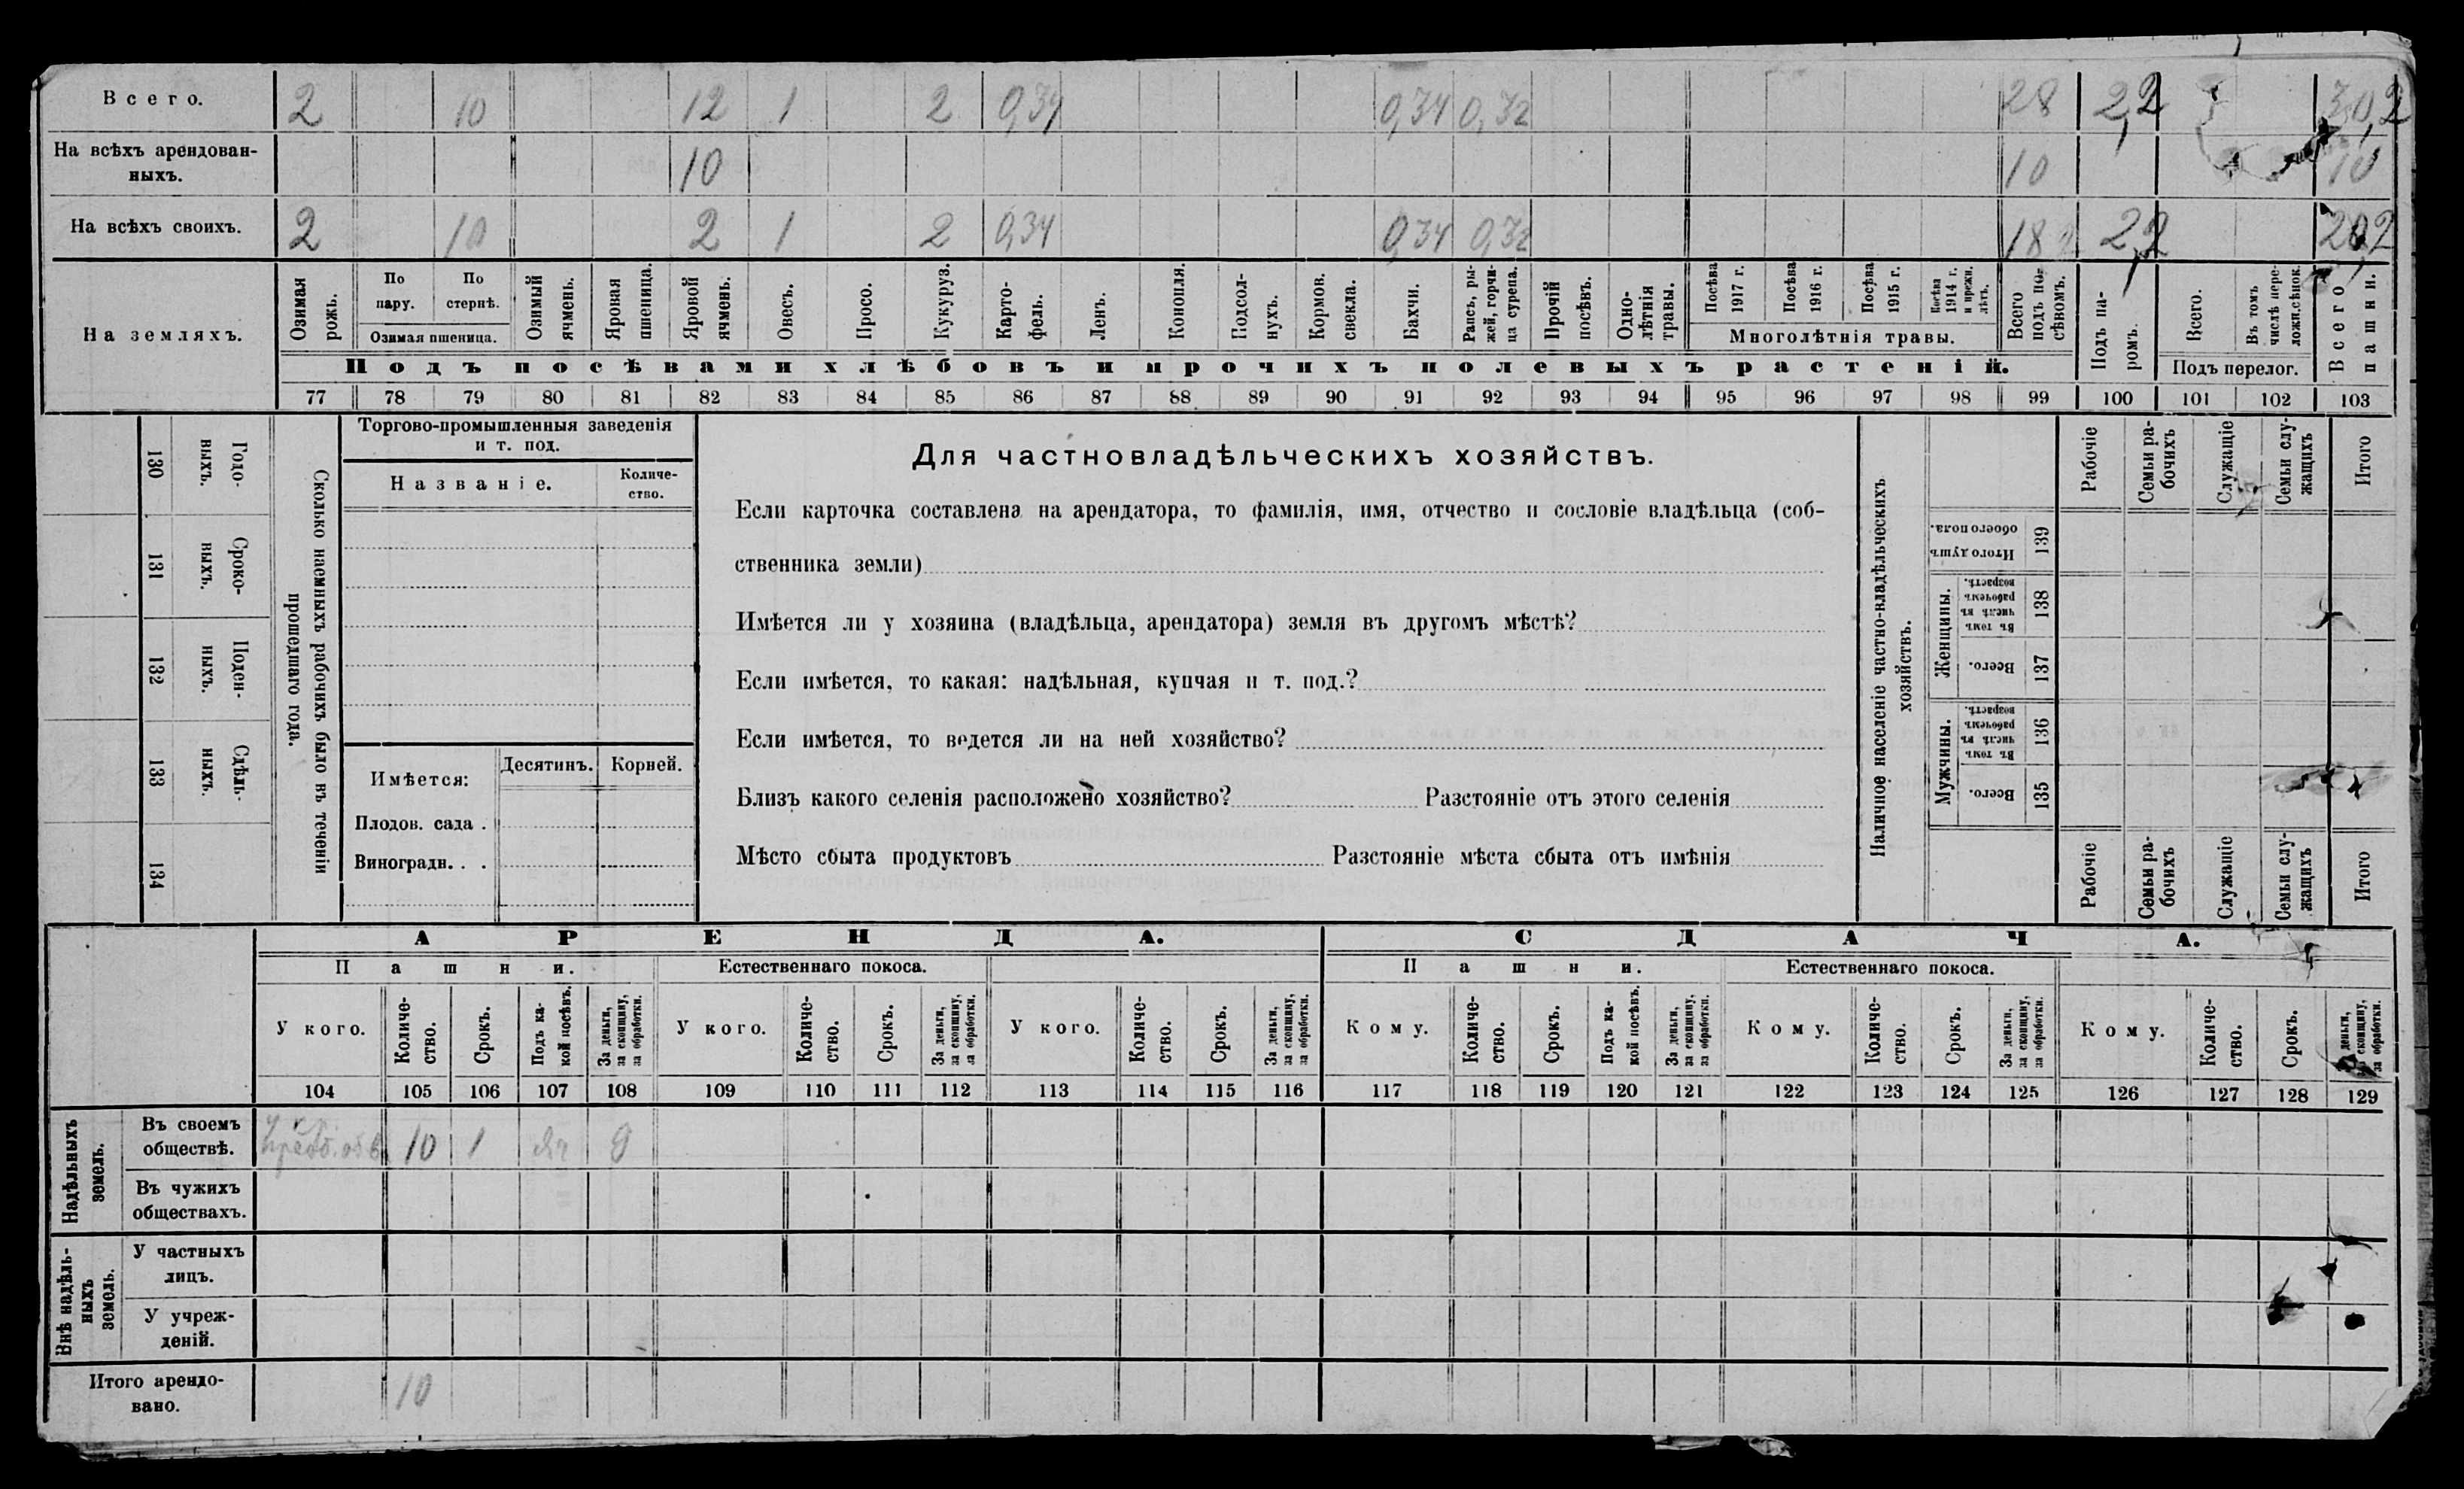 Всего. 2 10 12 1 2 0,34 0,34 0,32 28 2,2 30,2
На всѣхъ арендован-
ныхъ. 10 10 10
На всѣхъ своихъ. 2 10 2 1 2 0,34 0,34 0,32 18 2,2 20,2
На земляхъ.
Озимая рожь.
По пару.
По стернѣ.
Озимая пшеница.
Озимый ячмень.
Яровая пшеница.
Яровой ячмень.
Овесъ.
Просо.
Кукуруз.
Карто-
фель.
Ленъ.
Конопля.
Подсол-
нухъ.
Кормов.
свекла.
Бахчи.
Рапсъ, ры-
жей, горчи-
ца сурепа.
Прочій
посѣвъ.
Одно-
лѣтнія
травы.
Посѣва
1917 г.
Посѣва
1916 г.
Посѣва
1915 г.
Посѣва
1914 г.
и прежн.
лѣтъ.
Многолѣтнія травы.
Всего
подъ по-
сѣвомъ.
Подъ па-
ромъ.
Всего.
Въ томъ
числѣ пере-
ложн.сѣнок.
Подъ перелог.
Всего
пашни.
Подъ посѣвами хлѣбовъ и прочихъ полевыхъ растеній.
77 78 79 80 81 82 83 84 85 86 87 88 89 90 91 92 93 94 95 96 97 98 99 100 101 102 103
130 Годо-
ныхъ.
131 Сроко-
ныхъ.
132 Поден-
ныхъ.
133 Сдѣль-
ныхъ.
134
Сколько наемныхъ рабочихъ было въ теченіи
прошедшаго года.
Торгово-промышленныя заведенія
и т. под.
Названіе.
Количе-
ство.
Имѣется:
Десятинъ.
Корней.
Плодов. сада .
Виноградн. . .
Для частновладѣльческихъ хозяйствъ.
Если карточка составлена на арендатора, то фамилія, имя, отчество и сословіе владѣльца (соб-
ственника земли)
Имѣется ли у хозяина (владѣльца, арендатора) земля въ другомъ мѣстѣ?
Если имѣется, то какая: надѣльная, купчая и т. под.?
Если имѣется, то ведется ли на ней хозяйство?
Близъ какого селенія расположено хозяйство? Разстояніе отъ этого селенія
Мѣсто сбыта продуктовъ Разстояніе мѣста сбыта отъ имѣнія
Наличное населеніе частно-владѣльческихъ
хозяйствъ.
Рабочіе
Семьи ра-
бочихъ
Служащіе
Семьи слу-
жащихъ
Итого
Итого душъ
обоего пола.
139
Женщины.
Въ томъ
числѣ въ
рабочемъ
возрастѣ.
138
Всего.
137
Мужчины.
Въ томъ
числѣ въ
рабочемъ
возрастѣ.
136
Всего.
135
Рабочіе
Семьи ра-
бочихъ
Служащіе
Семьи слу-
жащихъ
Итого
АРЕНДА. СДАЧА.
Пашни. Естественнаго покоса. Пашни. Естественнаго покоса.
У кого.
Количе-
ство.
Срокъ.
Подъ ка-
кой посѣвъ.
За деньги,
за скопщину,
за обработки.
У кого.
Количе-
ство.
Срокъ.
За деньги,
за скопщину,
за обработки.
У кого.
Количе-
ство.
Срокъ.
За деньги,
за скопщину,
за обработки.
Кому.
Количе-
ство.
Срокъ.
Подъ ка-
кой посѣвъ.
За деньги,
за скопщину,
за обработки.
Кому.
Количе-
ство.
Срокъ.
За деньги,
за скопщину,
за обработки.
Кому.
Количе-
ство.
Срокъ.
деньги,
за скопщину,
за обработки.
104 105 106 107 108 109 110 111 112 113 114 115 116 117 118 119 120 121 122 123 124 125 126 127 128 129
Надѣльныхъ
земель.
Въ своемъ
обществѣ. 10 1 яч
Въ чужихъ
обществахъ.
Внѣ надѣль-
ныхъ
земель.
У частныхъ
лицъ.
У учреж-
деній.
Итого арендо-
вано. 10